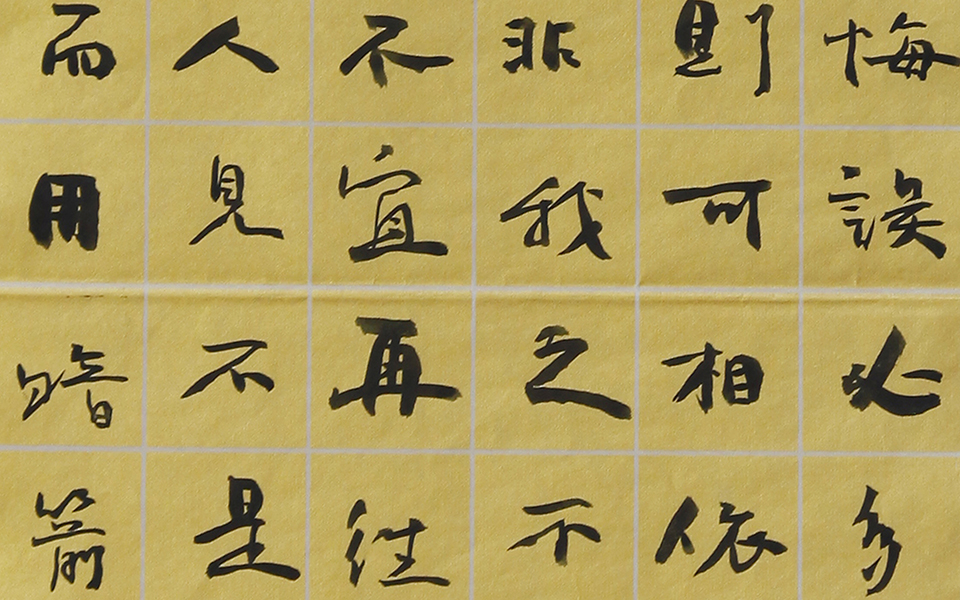 悔誤必多
則可相依
非我之不
不宜再往
人見不是
而用暗箭